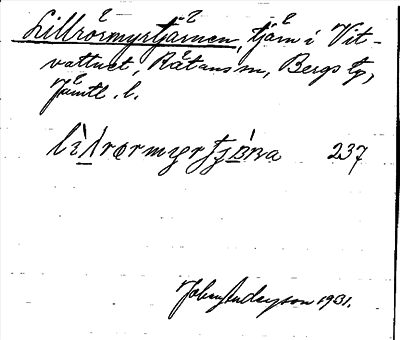 Lillrörmyrtjärnen, tjärn i Vit-
vattnet, Rätans sn, Bergs tg,
Jämtl. l.
lìlrørmyrtjæ̀rna 237
Johan Anderson 1931.